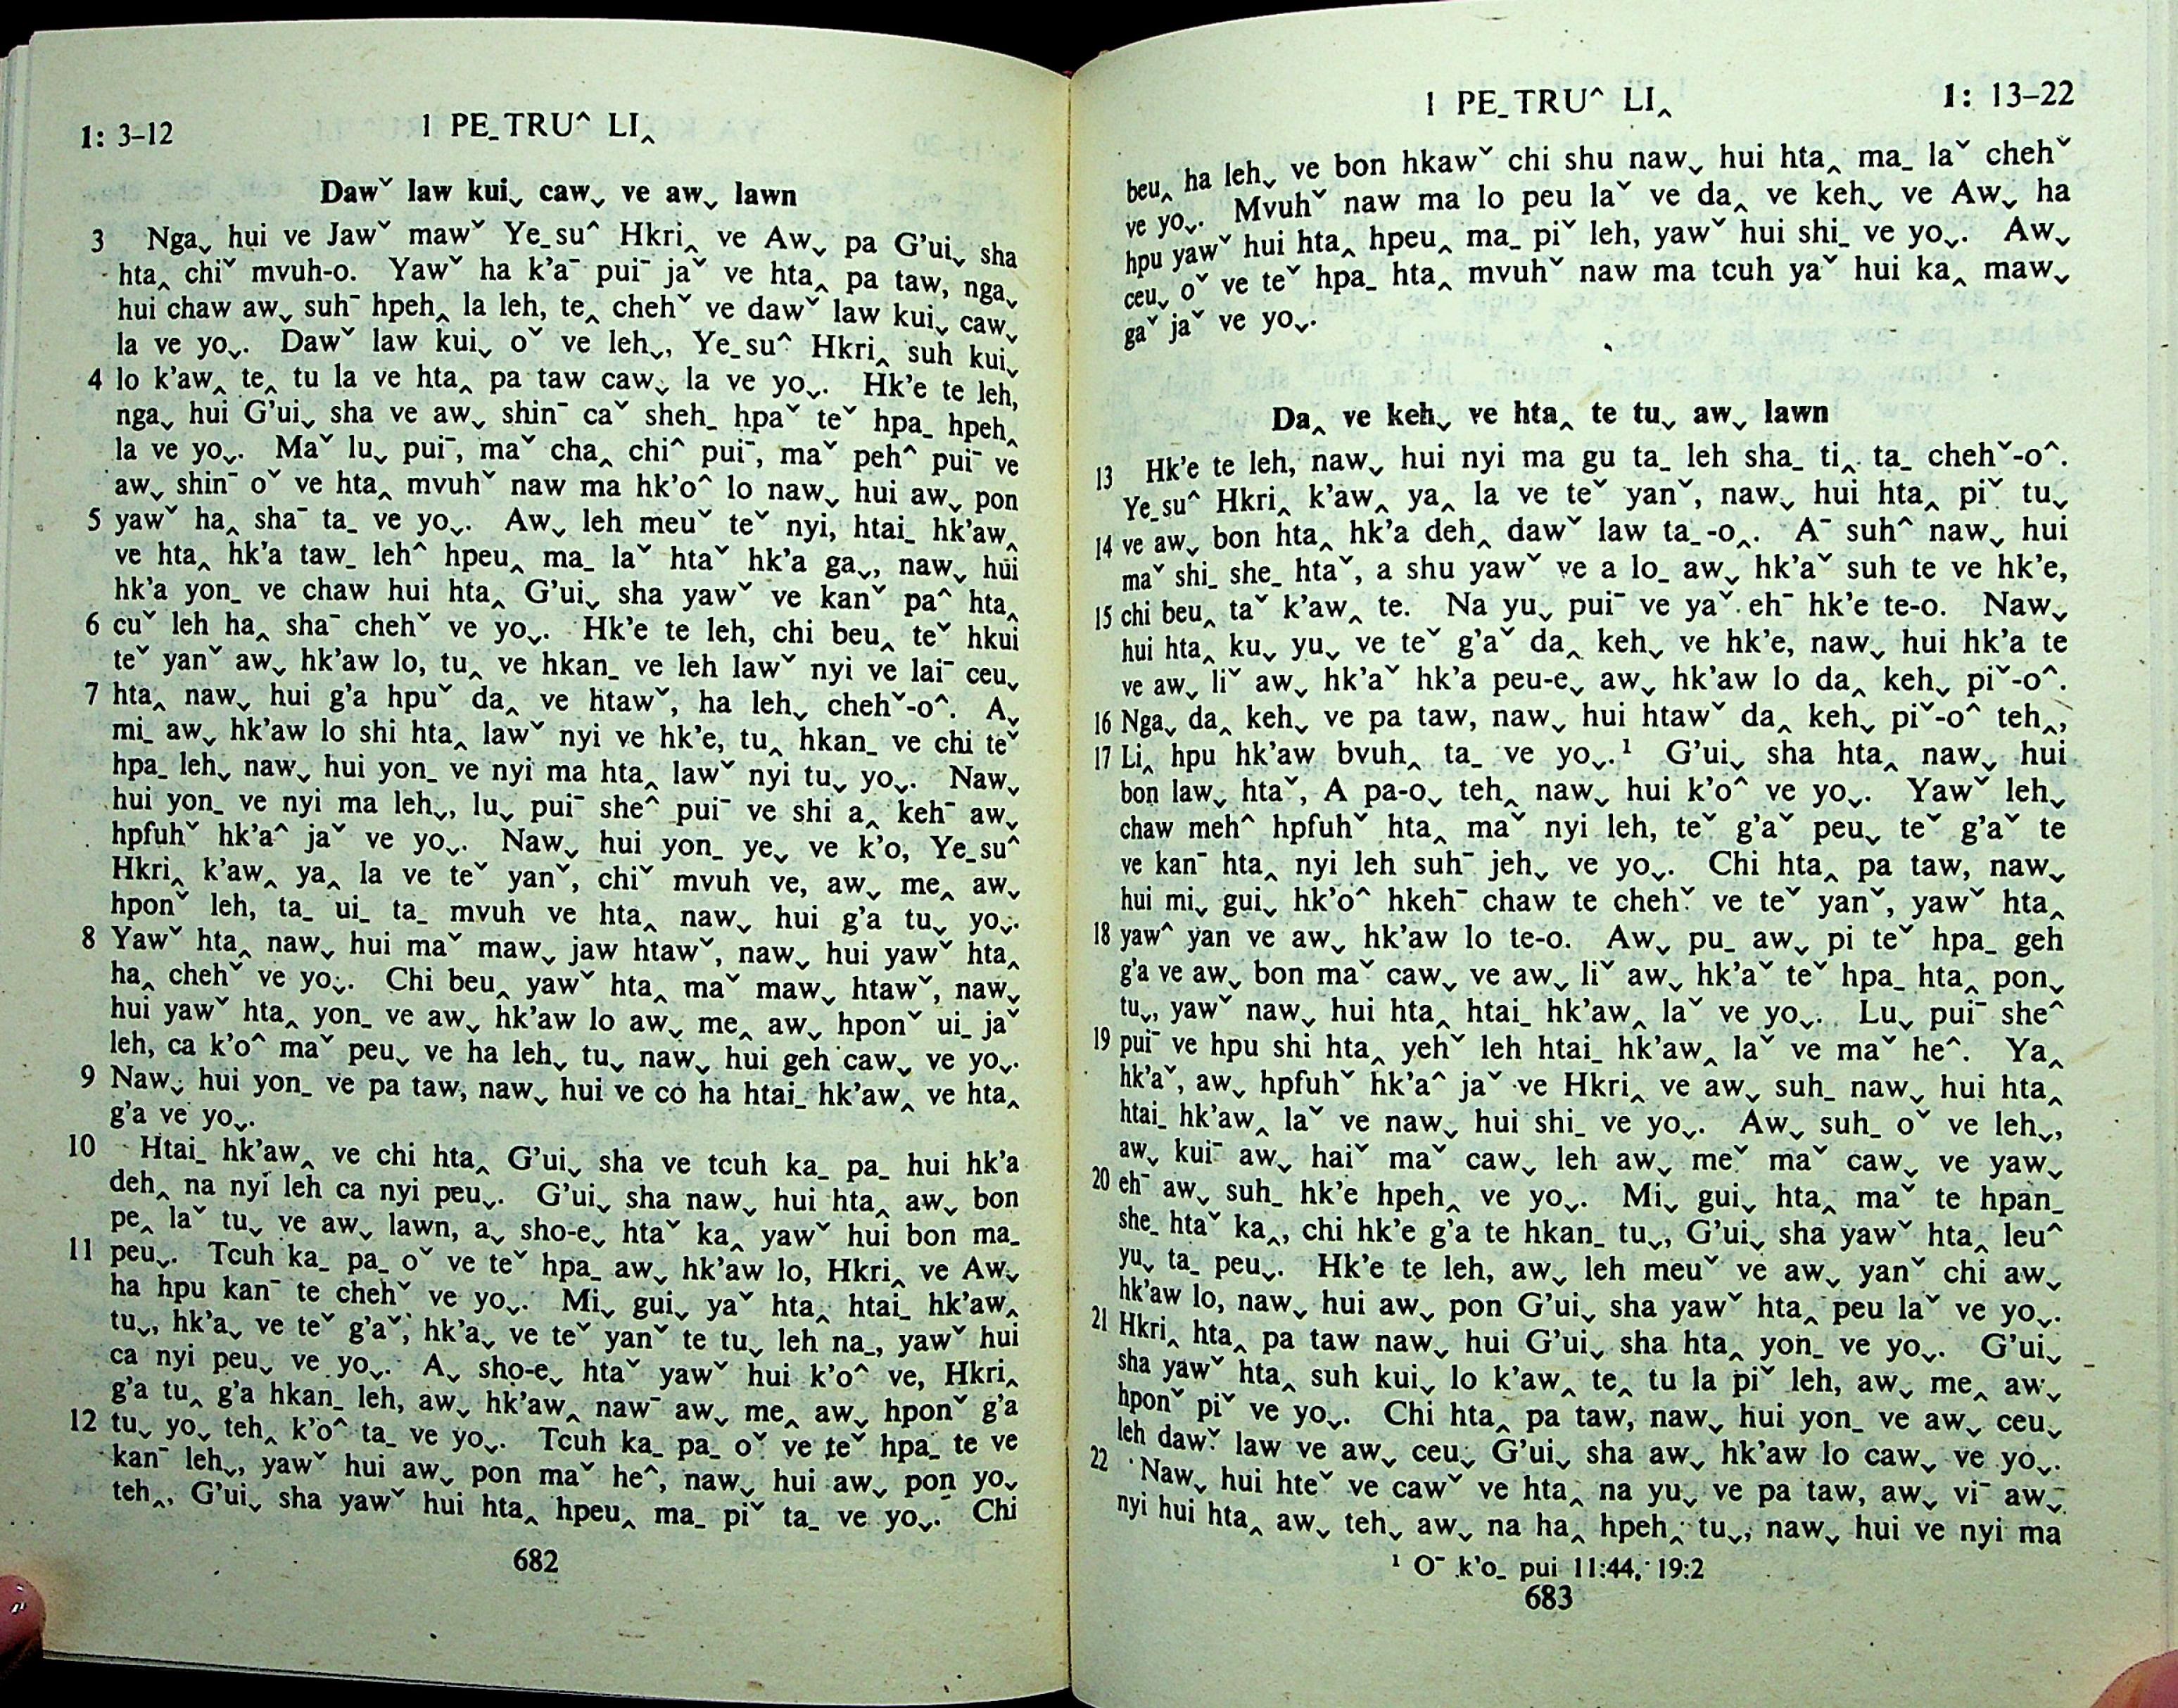 1: 3–12
1 PE_TRU^ LI‸
Daw˅ law kui⌄ caw⌄ ve aw⌄ lawn
3 Nga⌄ hui ve Jaw˅ maw˅ Ye_su^ Hkri‸ ve Aw⌄ pa G'ui⌄ sha
hta‸ chi˅ mvuh-o. Yaw˅ ha k'a¯ pui¯ ja˅ ve hta‸ pa taw, nga⌄
hui chaw aw⌄ suh¯ hpeh‸ la leh, te‸ cheh˅ ve daw˅ law kui⌄ caw⌄
la ve yo⌄. Daw˅ law kui⌄ o˅ ve leh⌄, Ye_su^ Hkri‸ suh kui⌄
4 lo k'aw‸ te‸ tu la ve hta‸ pa taw caw⌄ la ve yo⌄. Hk'e te leh,
nga⌄ hui G'ui⌄ sha ve aw⌄ shin¯ ca˅ sheh_ hpa˅ te˅ hpa_ hpeh‸
la ve yo⌄. Ma˅ lu⌄ pui¯, ma˅ cha‸ chi^ pui¯, ma˅ peh^ pui¯ ve
aw⌄ shin¯ o˅ ve hta‸ mvuh˅ naw ma hk'o^ lo naw⌄ hui aw⌄ pon
5 yaw˅ ha‸ sha¯ ta_ ve yo⌄. Aw⌄ leh meu˅ te˅ nyi, htai_ hk'aw‸
ve hta‸ hk'a taw_ leh^ hpeu‸ ma_ la˅ hta˅ hk'a ga⌄, naw⌄ hui
hk'a yon_ ve chaw hui hta‸ G'ui⌄ sha yaw˅ ve kan˅ pa^ hta‸
6 cu˅ leh ha‸ sha¯ cheh˅ ve yo⌄. Hk'e te leh, chi beu‸ te˅ hkui
te˅ yan˅ aw⌄ hk'aw lo, tu‸ ve hkan_ ve leh law˅ nyi ve lai¯ ceu⌄
7 hta‸ naw⌄ hui g'a hpu˅ da‸ ve htaw˅, ha leh⌄ cheh˅-o^. A⌄
mi_ aw⌄ hk'aw lo shi hta‸ law˅ nyi ve hk'e, tu‸ hkan_ ve chi te˅
hpa_ leh⌄ naw⌄ hui yon_ ve nyi ma hta‸ law˅ nyi tu⌄ yo⌄. Naw⌄
hui yon_ ve nyi ma leh⌄, lu⌄ pui¯ she^ pui¯ ve shi a‸ keh¯ aw⌄
hpfuh˅ hk'a^ ja˅ ve yo⌄. Naw⌄ hui yon_ ye⌄ ve k'o, Ye_su^
Hkri‸ k'aw‸ ya‸ la ve te˅ yan˅, chi˅ mvuh ve, aw⌄ me‸ aw⌄
hpon˅ leh, ta_ ui_ ta_ mvuh ve hta‸ naw⌄ hui g'a tu⌄ yo⌄.
8 Yaw˅ hta‸ naw⌄ hui ma˅ maw⌄ jaw htaw˅, naw⌄ hui yaw˅ hta‸
ha‸ cheh˅ ve yo⌄. Chi beu‸ yaw˅ hta‸ ma˅ maw⌄ htaw˅, naw⌄
hui yaw˅ hta‸ yon_ ve aw⌄ hk'aw lo aw⌄ me‸ aw⌄ hpon˅ ui_ ja˅
leh, ca k'o^ ma˅ peu⌄ ve ha leh⌄ tu⌄ naw⌄ hui geh caw⌄ ve yo⌄.
9 Naw⌄ hui yon_ ve pa taw, naw⌄ hui ve co ha htai_ hk'aw‸ ve hta‸
g'a ve yo⌄.
10 Htai_ hk'aw‸ ve chi hta‸ G'ui⌄ sha ve tcuh ka_ pa_ hui hk'a
deh‸ na nyi leh ca nyi peu⌄. G'ui⌄ sha naw⌄ hui hta‸ aw⌄ bon
pe‸ la˅ tu⌄ ve aw⌄ lawn, a⌄ sho-e⌄ hta˅ ka‸ yaw˅ hui bon ma_
11 peu⌄. Tcuh ka_ pa_ o˅ ve te˅ hpa_ aw⌄ hk'aw lo, Hkri‸ ve Aw⌄
ha hpu kan¯ te cheh˅ ve yo⌄. Mi⌄ gui⌄ ya˅ hta‸ htai_ hk'aw‸
tu⌄, hk'a⌄ ve te˅ g'a˅, hk'a⌄ ve te˅ yan˅ te tu⌄ leh na_, yaw˅ hui
ca nyi peu⌄ ve yo⌄. A⌄ sho-e⌄ hta˅ yaw˅ hui k'o^ ve, Hkri‸
g'a tu‸ g'a hkan_ leh, aw⌄ hk'aw‸ naw¯ aw⌄ me‸ aw⌄ hpon˅ g'a
12 tu⌄ yo⌄ teh‸ k'o^ ta_ ve yo⌄. Tcuh ka_ pa_ o˅ ve te˅ hpa_ te ve
kan¯ leh⌄, yaw˅ hui aw⌄ pon ma˅ he^, naw⌄ hui aw⌄ pon yo⌄
teh‸, G'ui⌄ sha yaw˅ hui hta‸ hpeu‸ ma_ pi˅ ta_ ve yo⌄. Chi
682
1 PE_TRU^ LI‸
1: 13–22
beu‸ ha leh⌄ ve bon hkaw˅ chi shu naw⌄ hui hta‸ ma_ la˅ cheh˅
ve yo⌄. Mvuh˅ naw ma lo peu la˅ ve da‸ ve keh⌄ ve Aw⌄ ha
hpu yaw˅ hui hta‸ hpeu‸ ma_ pi˅ leh, yaw˅ hui shi_ ve yo⌄. Aw⌄
ceu⌄ o˅ ve te˅ hpa_ hta‸ mvuh˅ naw ma tcuh ya˅ hui ka‸ maw⌄
ga˅ ja˅ ve yo⌄.
Da‸ ve keh⌄ ve hta‸ te tu⌄ aw⌄ lawn
13 Hk'e te leh, naw⌄ hui nyi ma gu ta_ leh sha_ ti‸ ta_ cheh˅-o^.
Ye_su^ Hkri‸ k'aw‸ ya‸ la ve te˅ yan˅, naw⌄ hui hta‸ pi˅ tu⌄
14 ve aw⌄ bon hta‸ hk'a deh‸ daw˅ law ta_-o‸. A¯ suh^ naw⌄ hui
ma˅ shi_ she_ hta˅, a shu yaw˅ ve a lo_ aw⌄ hk'a˅ suh te ve hk'e,
15 chi beu‸ ta˅ k'aw‸ te. Na yu⌄ pui¯ ve ya˅ eh¯ hk'e te-o. Naw⌄
hui hta‸ ku⌄ yu⌄ ve te˅ g'a˅ da‸ keh⌄ ve hk'e, naw⌄ hui hk'a te
ve aw⌄ li˅ aw⌄ hk'a˅ hk'a peu-e⌄ aw⌄ hk'aw lo da‸ keh⌄ pi˅-o^.
16 Nga⌄ da‸ keh⌄ ve pa taw, naw⌄ hui htaw˅ da‸ keh⌄ pi˅-o^ teh‸,
17 Li‸ hpu hk'aw bvuh‸ ta_ ve yo⌄.¹ G'ui⌄ sha hta‸ naw⌄ hui
bon law⌄ hta˅, A pa-o⌄ teh‸ naw⌄ hui k'o^ ve yo⌄. Yaw˅ leh⌄
chaw meh^ hpfuh˅ hta‸ ma˅ nyi leh, te˅ g'a˅ peu⌄ te˅ g'a˅ te
ve kan¯ hta‸ nyi leh suh¯ jeh⌄ ve yo⌄. Chi hta‸ pa taw, naw⌄
hui mi⌄ gui⌄ hk'o^ hkeh¯ chaw te cheh˅ ve te˅ yan˅, yaw˅ hta‸
18 yaw^ yan ve aw⌄ hk'aw lo te-o. Aw⌄ pu_ aw⌄ pi te˅ hpa_ geh
g'a ve aw⌄ bon ma˅ caw⌄ ve aw⌄ li˅ aw⌄ hk'a˅ te˅ hpa_ hta‸ pon⌄
tu⌄, yaw˅ naw⌄ hui hta‸ htai_ hk'aw‸ la˅ ve yo⌄. Lu⌄ pui¯ she^
19 pui¯ ve hpu shi hta‸ yeh˅ leh htai_ hk'aw‸ la˅ ve ma˅ he^. Ya‸
hk'a˅, aw⌄ hpfuh˅ hk'a^ ja˅ ve Hkri‸ ve aw⌄ suh_ naw⌄ hui hta‸
htai_ hk'aw‸ la˅ ve naw⌄ hui shi_ ve yo⌄. Aw⌄ suh_ o˅ ve leh⌄,
aw⌄ kui¯ aw⌄ hai˅ ma˅ caw⌄ leh aw⌄ me˅ ma˅ caw⌄ ve yaw⌄
20 eh¯ aw⌄ suh_ hk'e hpeh‸ ve yo⌄. Mi⌄ gui⌄ hta‸ ma˅ te hpan_
she_ hta˅ ka‸, chi hk'e g'a te hkan_ tu⌄, G'ui⌄ sha yaw˅ hta‸ leu^
yu⌄ ta_ peu⌄. Hk'e te leh, aw⌄ leh meu˅ ve aw⌄ yan˅ chi aw⌄
hk'aw lo, naw⌄ hui aw⌄ pon G'ui⌄ sha yaw˅ hta‸ peu la˅ ve yo⌄.
21 Hkri‸ hta‸ pa taw naw⌄ hui G'ui⌄ sha hta‸ yon_ ve yo⌄. G'ui⌄
sha yaw˅ hta‸ suh kui⌄ lo k'aw‸ te‸ tu la pi˅ leh, aw⌄ me‸ aw⌄
hpon˅ pi˅ ve yo⌄. Chi hta‸ pa taw, naw⌄ hui yon_ ve aw⌄ ceu⌄
leh daw˅ law ve aw⌄ ceu⌄ G'ui⌄ sha aw⌄ hk'aw lo caw⌄ ve yo⌄.
22 Naw⌄ hui hte˅ ve caw˅ ve hta‸ na yu⌄ ve pa taw, aw⌄ vi¯ aw⌄
nyi hui hta‸ aw⌄ teh⌄ aw⌄ na ha‸ hpeh‸ tu⌄, naw⌄ hui ve nyi ma
¹ O¯ k'o_ pui 11:44, 19:2
683